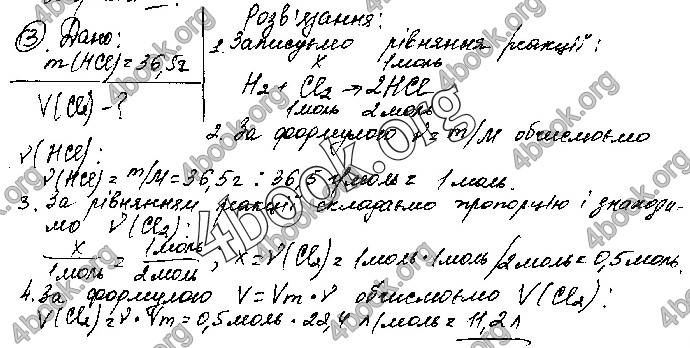 ③ Дано:
m(HCl)=36,5г
V(Cl₂) - ?
Розв'язання:
1. Записуємо рівняння реакції:
x 1моль
H₂ + Cl₂ → 2HCl
1моль 2моль
2. За формулою ν = m/M обчислюємо
ν(HCl):
ν(HCl) = m/M = 36,5г : 36,5 г/моль = 1 моль.
3. За рівнянням реакції складаємо пропорцію і знаходи-
мо ν(Cl₂):
x/1моль = 1моль/2моль, x = ν(Cl₂) = 1моль · 1моль / 2моль = 0,5моль.
4. За формулою V = Vm · ν обчислюємо V(Cl₂):
V(Cl₂) = ν · Vm = 0,5моль · 22,4 л/моль = 11,2л
4book.org